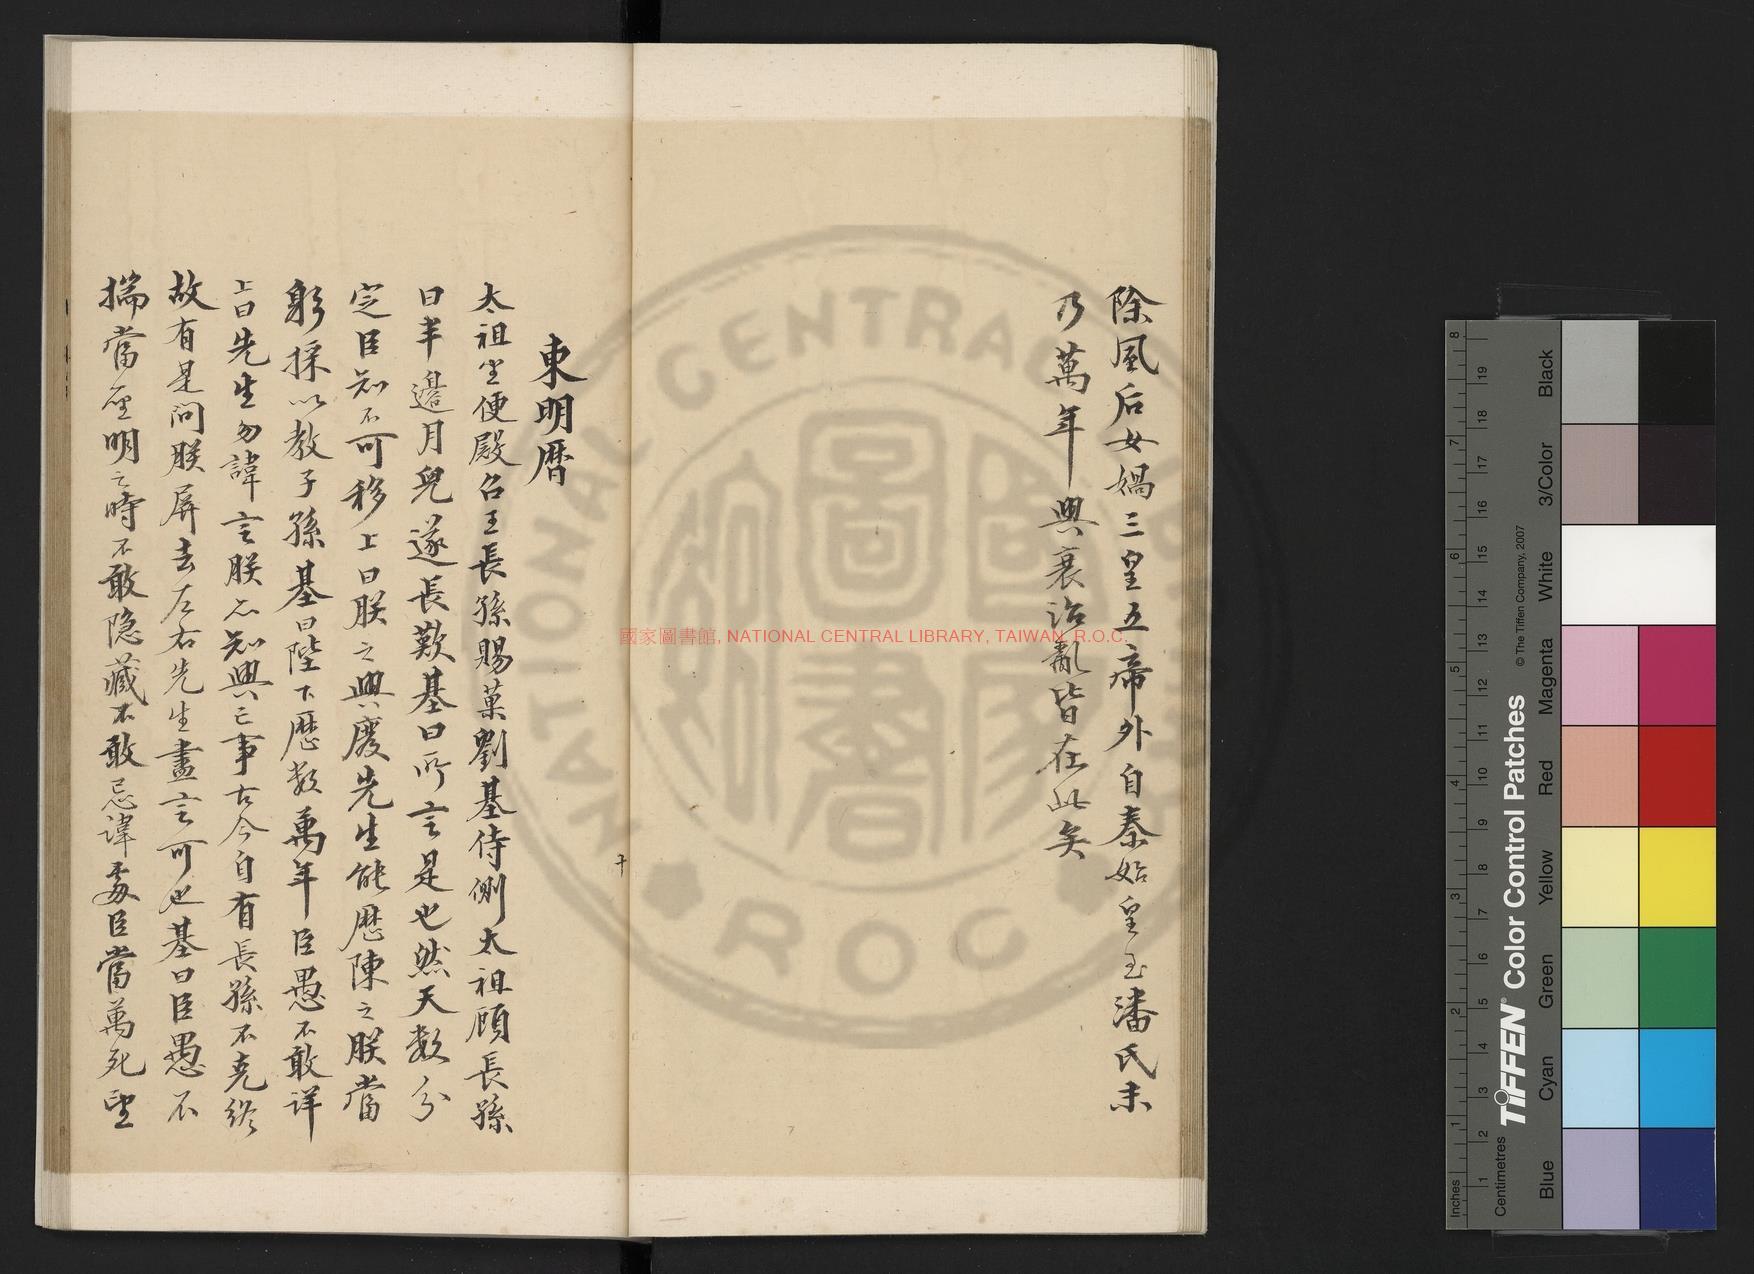 除風后女媧三皇五帝外自秦始皇至潘氏未
乃萬年興衰治亂皆在此矣
東明曆
太祖坐便殿召王長孫賜菓劉基侍側太祖顧長孫
曰半邉月兒遂長歎基曰所言是也然天數分
定臣知不可移上曰朕之興廢先生能歷陳之朕當
躬採以教子孫基曰陛下歷數萬年臣愚不敢詳
上曰先生勿諱言朕亦知興亡事古今自有長孫不克終
故有是問朕屏去左右先生盡言可也基曰臣愚不
揣當座明之時不敢隐藏不敢忌諱處臣當萬死望
國家圖書館, NATIONAL CENTRAL LIBRARY, TAIWAN, R.O.C.
NATIONAL CENTRAL
國家圖書
ROC
TIFFEN® Color Control Patches
© The Tiffen Company, 2007
Inches
Centimetres
Blue
Cyan
Green
Yellow
Red
Magenta
White
3/Color
Black